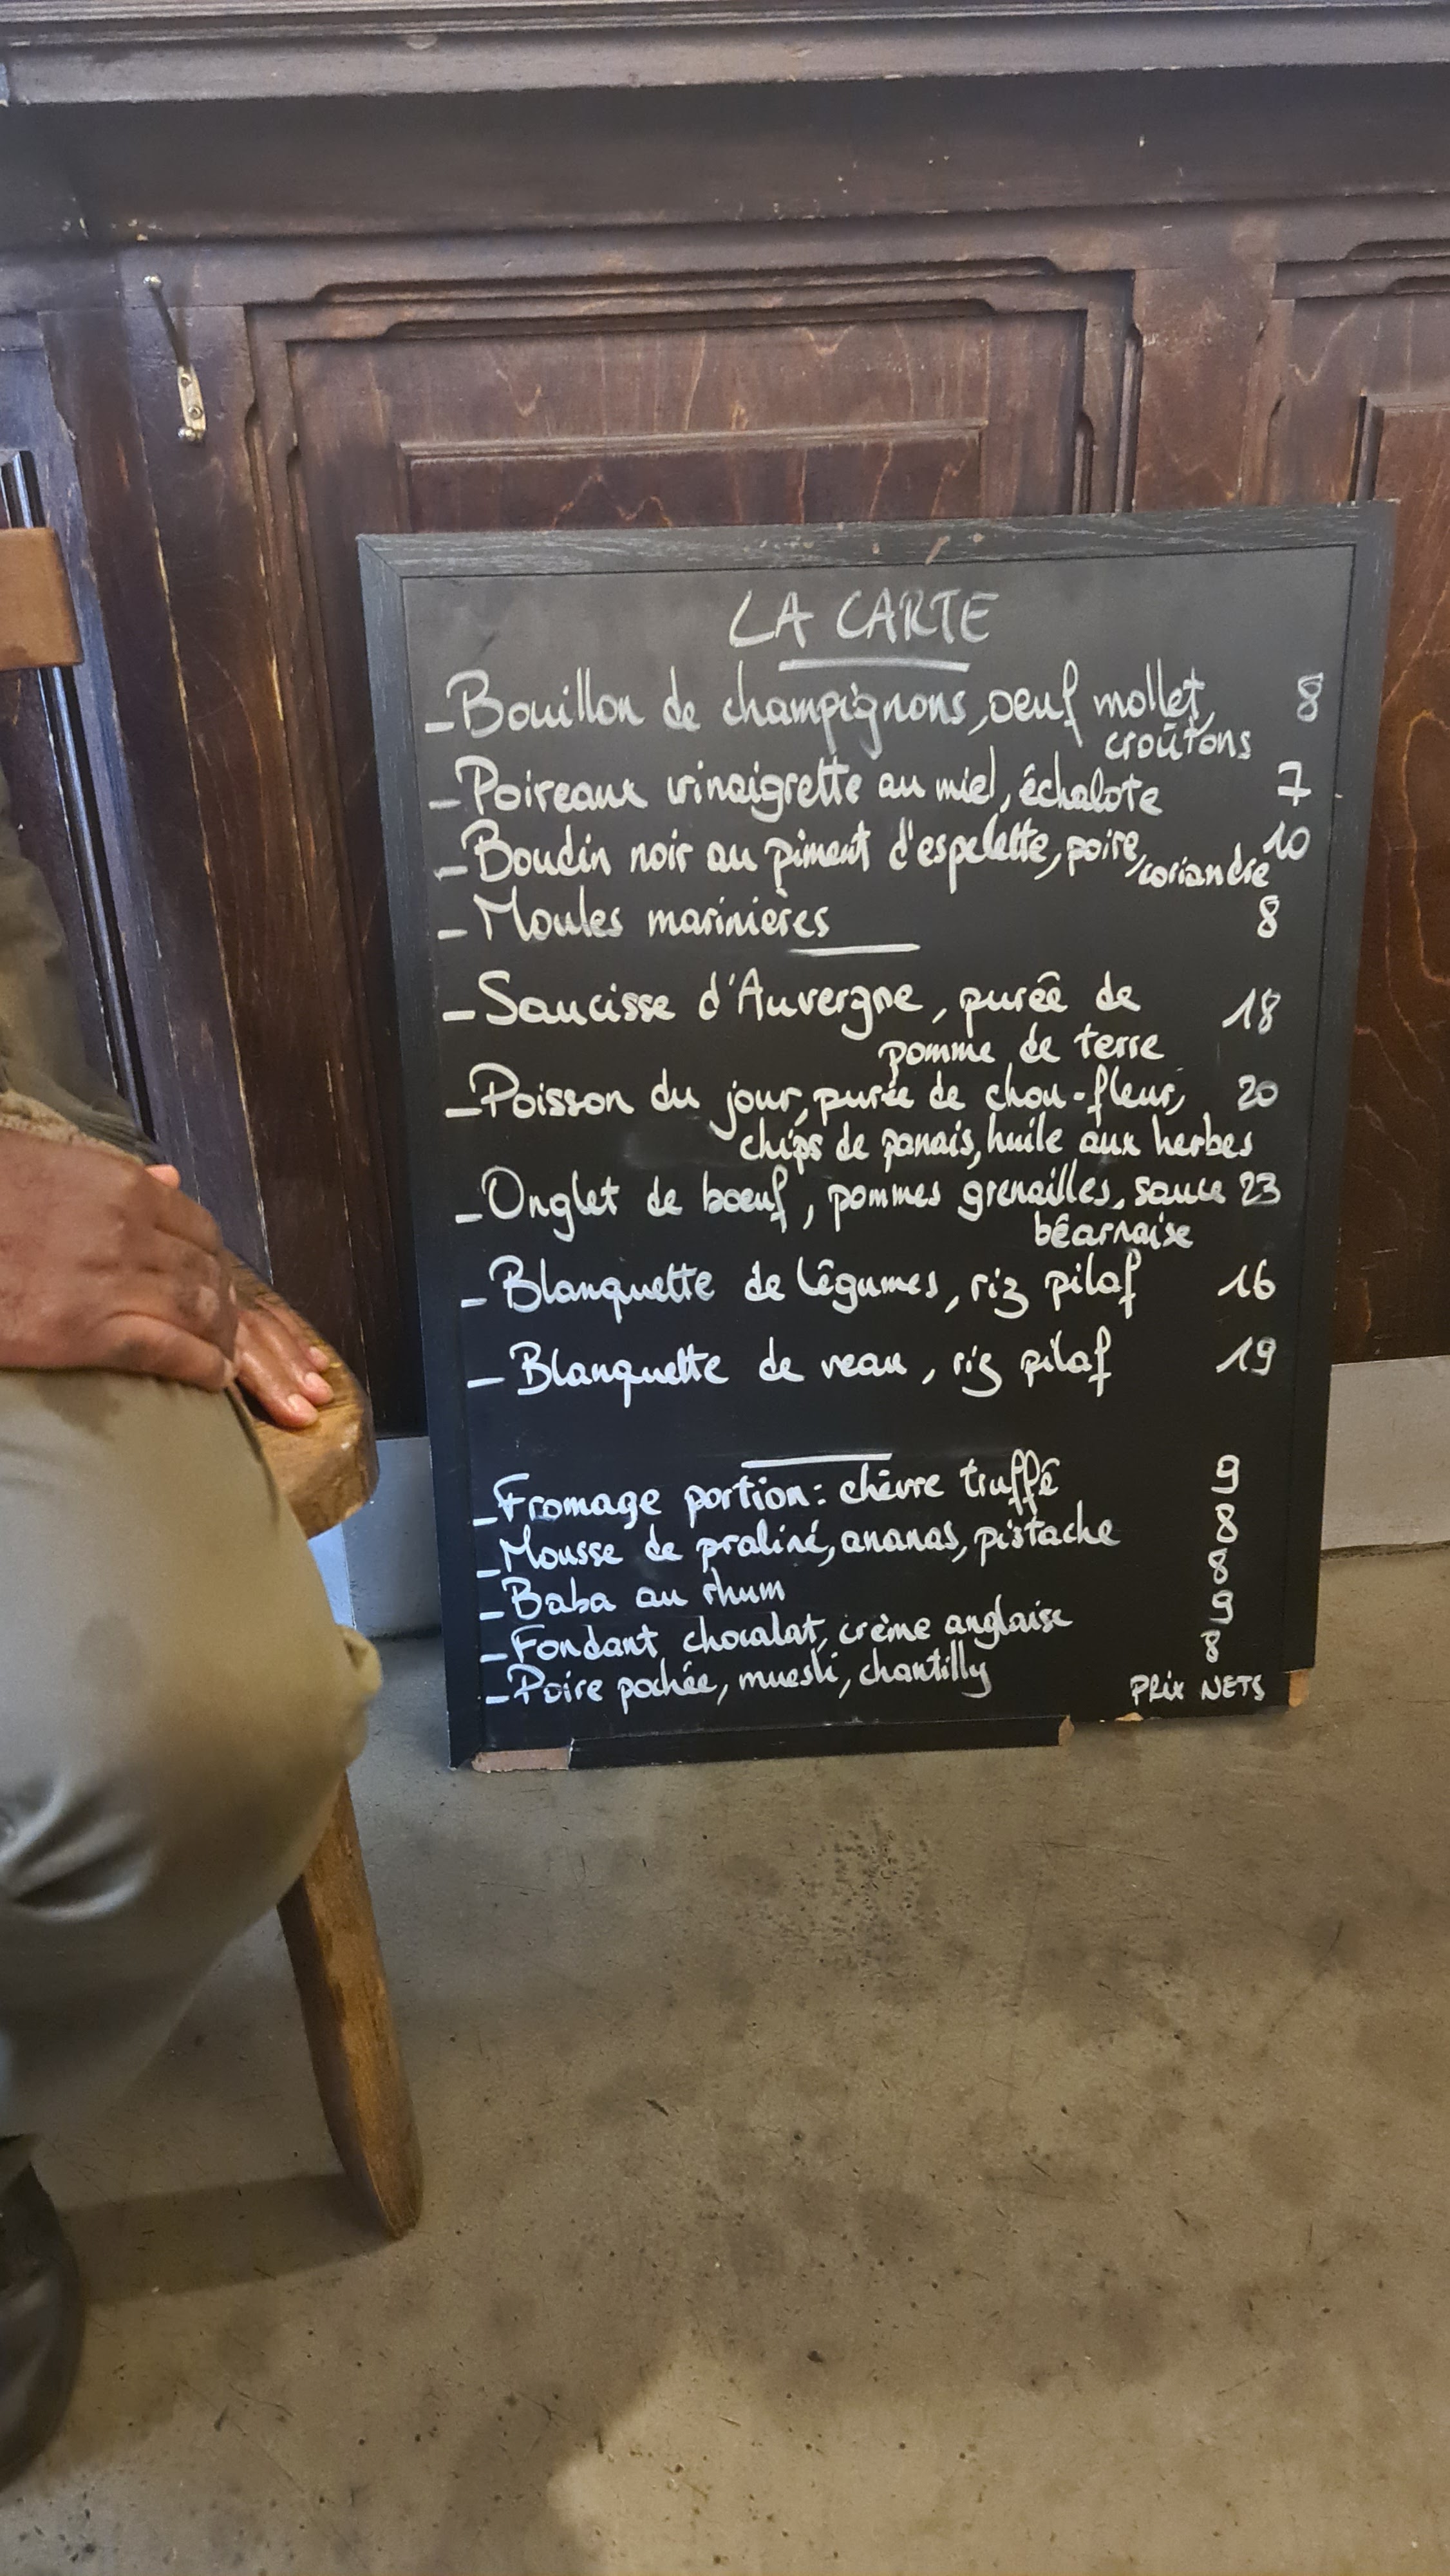 LA CARTE
- Bouillon de champignons, oeuf mollet, 8
croûtons
- Poireaux vinaigrette au miel, échalote 7
- Boudin noir au piment d'espelette, poire, coriandre 10
- Moules marinières 8
- Saucisse d'Auvergne, purée de 18
pomme de terre
- Poisson du jour, purée de chou-fleur, 20
chips de panais, huile aux herbes
- Onglet de boeuf, pommes grenailles, sauce 23
béarnaise
- Blanquette de légumes, riz pilaf 16
- Blanquette de veau, riz pilaf 19
- Fromage portion: chèvre truffé 9
- Mousse de praliné, ananas, pistache 8
- Baba au rhum 8
- Fondant chocolat, crème anglaise 9
- Poire pochée, muesli, chantilly 8
PRIX NETS